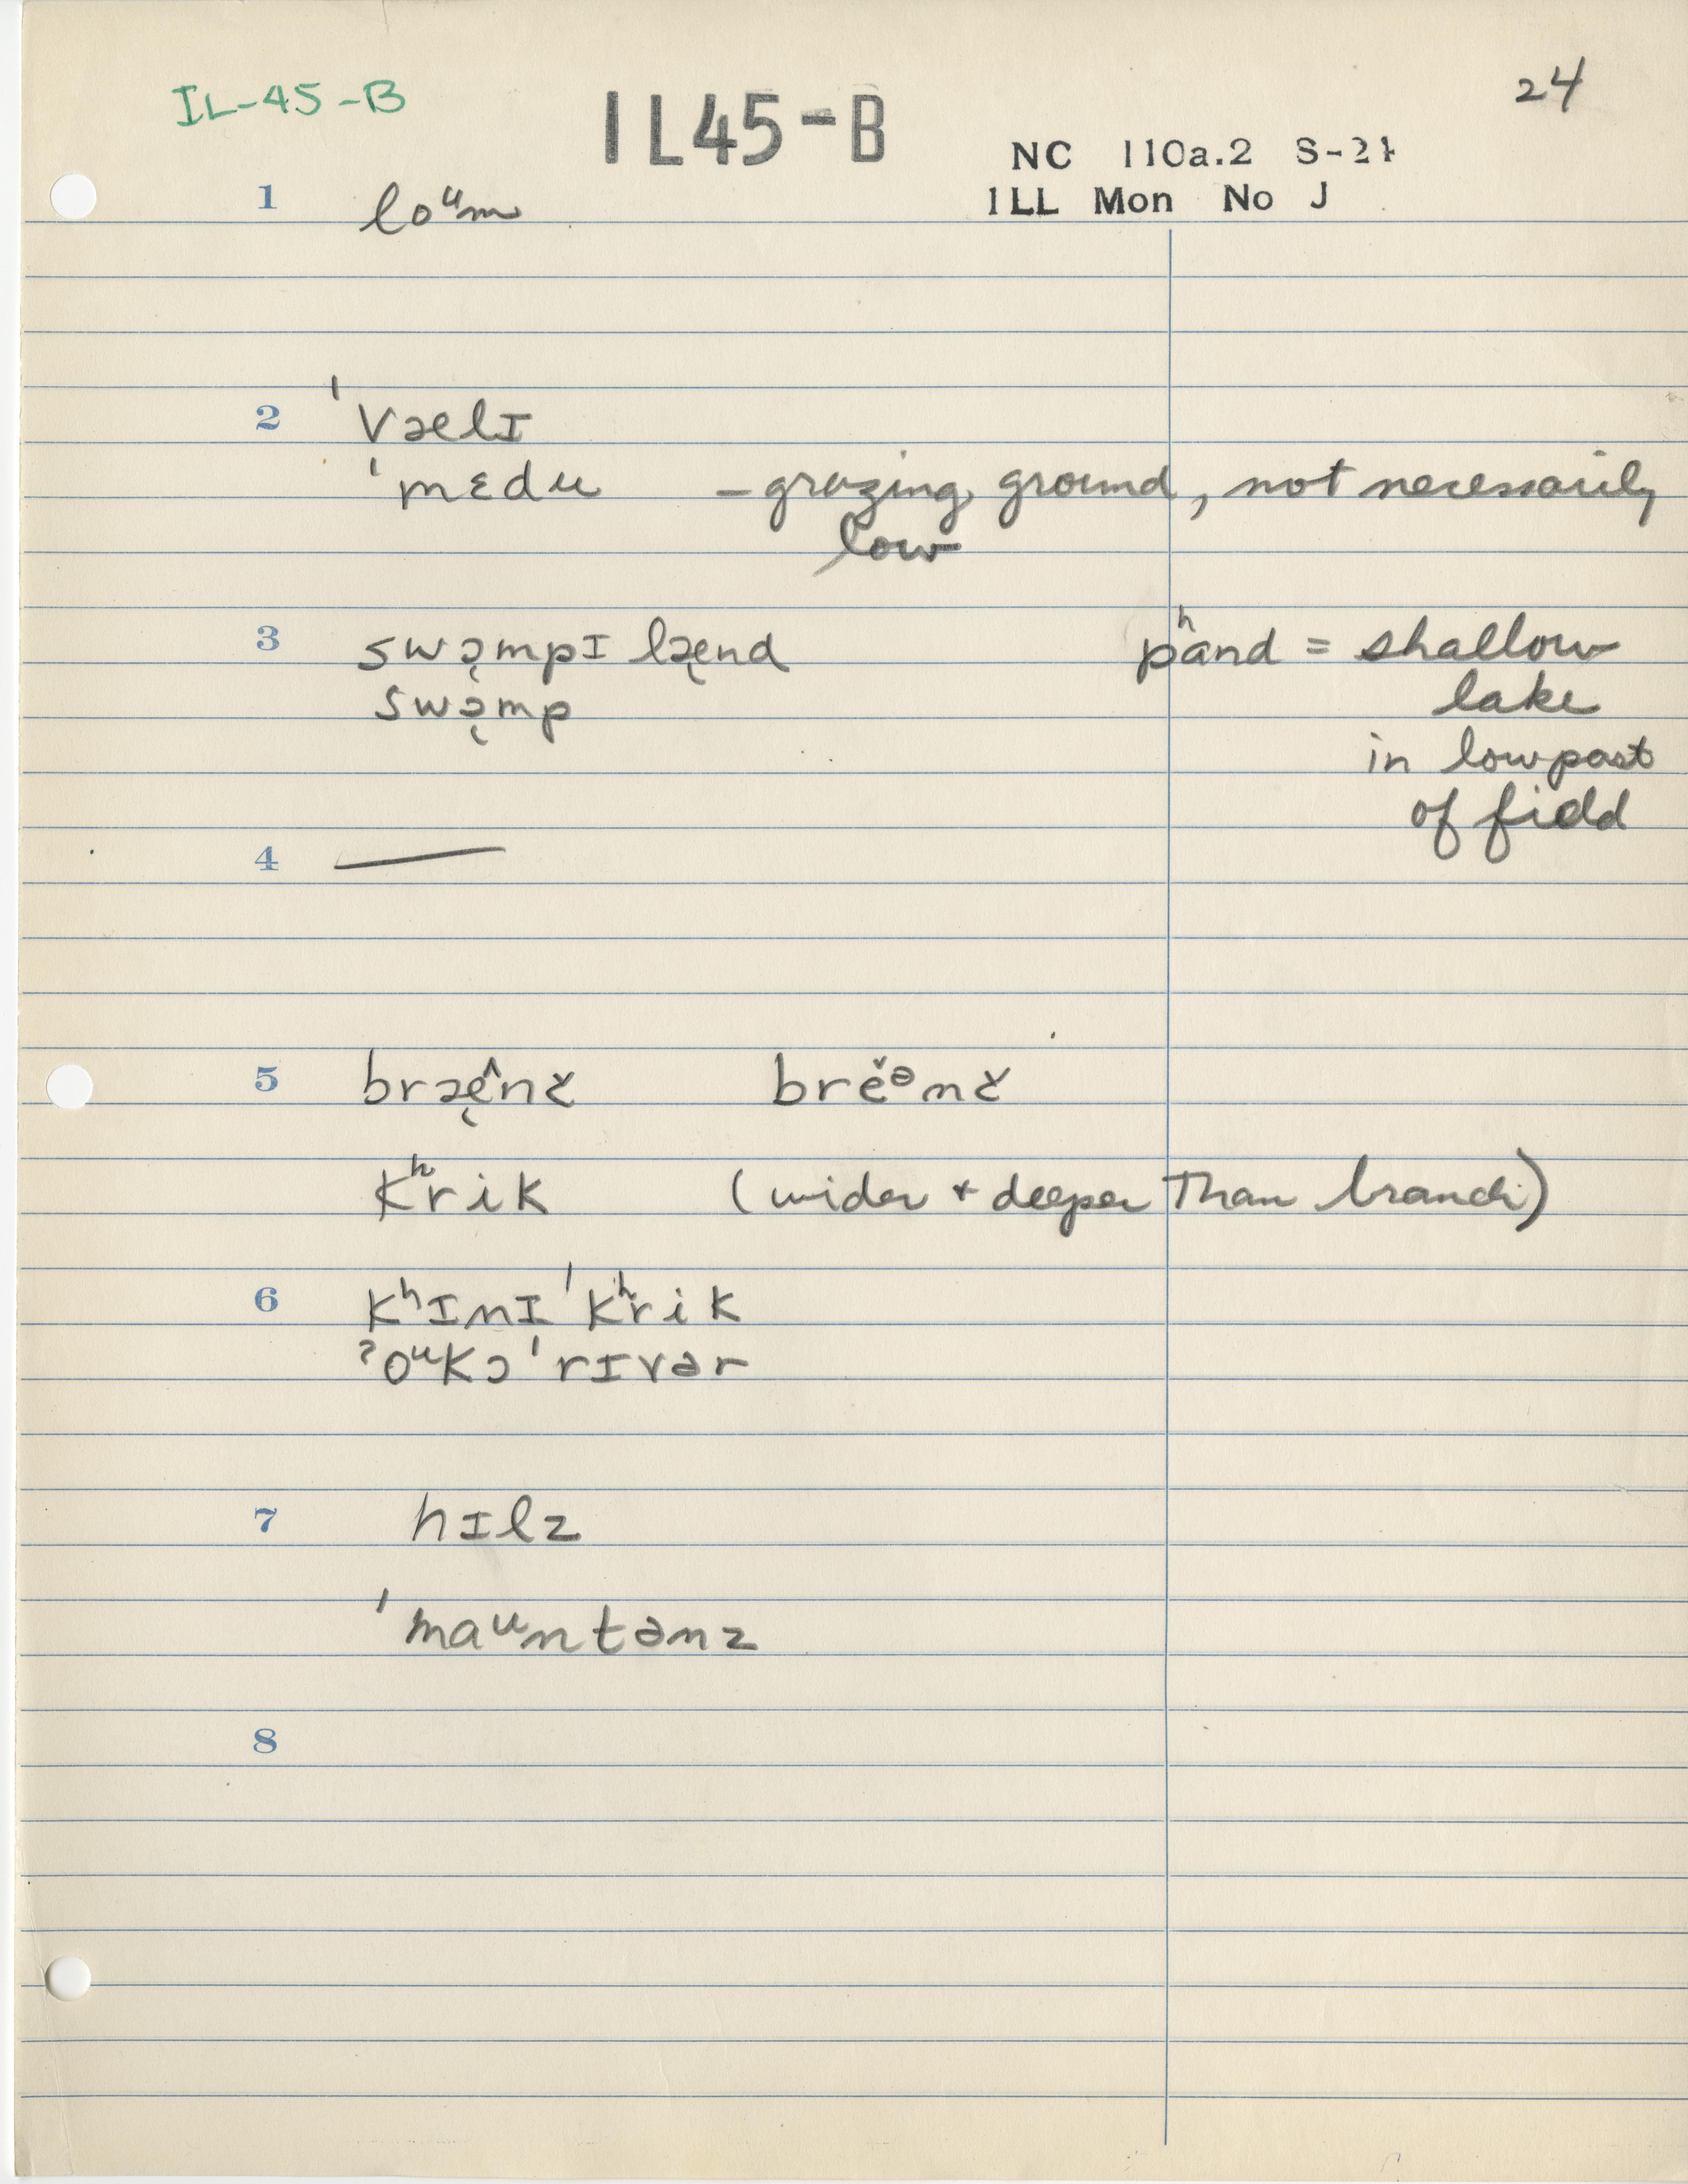 IL-45-B
IL45-B
24
NC 110a.2 S-21
ILL Mon No J
1 loᵘm
2 ˈvælɪ
ˈmɛdu – grazing ground, not necessarily
low
3 swæ̨mpɪ læ̨nd pʰand = shallow
swæ̨mp lake
in low part
of field
4 —
5 bræ̨̂nč brĕᵊnč
kʰrik (wider + deeper than branch)
6 kʰɪnɪ ˈkʰrik
ˀoᵘkɔ ˈrɪvər
7 hɪlz
ˈmaᵘntənz
8